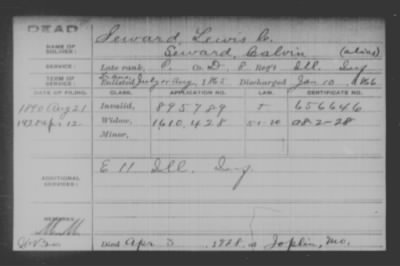 DEAD
NAME OF SOLDIER: Seward Lewis C.
Seward, Calvin (alias)
SERVICE: Late rank, P. Co. D, 8 Reg't Ill. Inf
TERM OF SERVICE: Enlisted July or Aug, 1865 Discharged Jan 10, 1866
DATE OF FILING. CLASS. APPLICATION NO. LAW. CERTIFICATE NO.
1890 Aug 21 Invalid, 895789 656646
1928 Apr 12 Widow, 1610,428 5-1-20 A8-2-28
Minor,
ADDITIONAL SERVICES: E 11 Ill. Inf
REMARKS:
Died Apr 3, 1928, at Joplin, Mo.